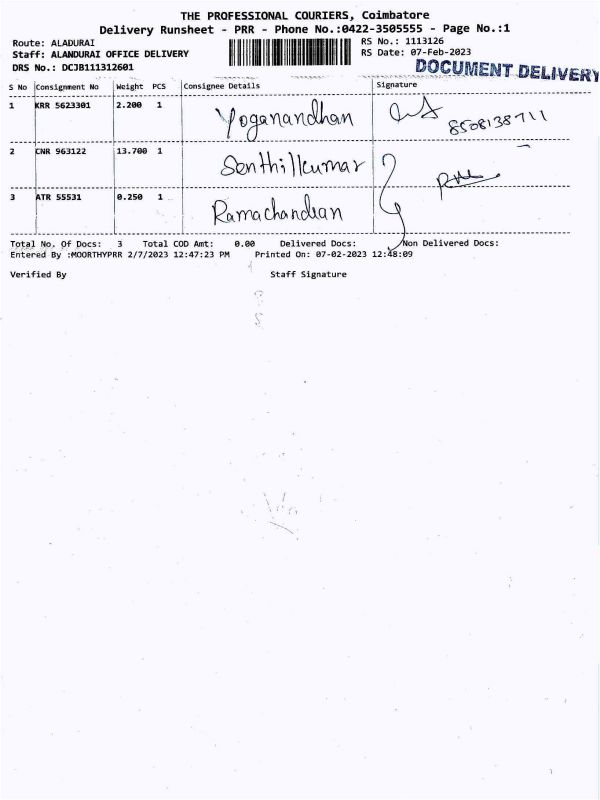 THE PROFESSIONAL COURIERS, Coimbatore
Delivery Runsheet - PRR - Phone No.:0422-3505555 - Page No.:1
Route: ALADURAI
RS No.: 1113126
Staff: ALANDURAI OFFICE DELIVERY
RS Date: 07-Feb-2023
DRS No.: DCJB111312601
DOCUMENT DELIVERY
S No Consignment No Weight PCS Consignee Details Signature
1 KRR 5623301 2.200 1 Yoganandhan 8508138711
2 CNR 963122 13.700 1 Senthilkumar
3 ATR 55531 0.250 1 Ramachandran
Total No. Of Docs: 3 Total COD Amt: 0.00 Delivered Docs: Non Delivered Docs:
Entered By :MOORTHYPRR 2/7/2023 12:47:23 PM Printed On: 07-02-2023 12:48:09
Verified By Staff Signature